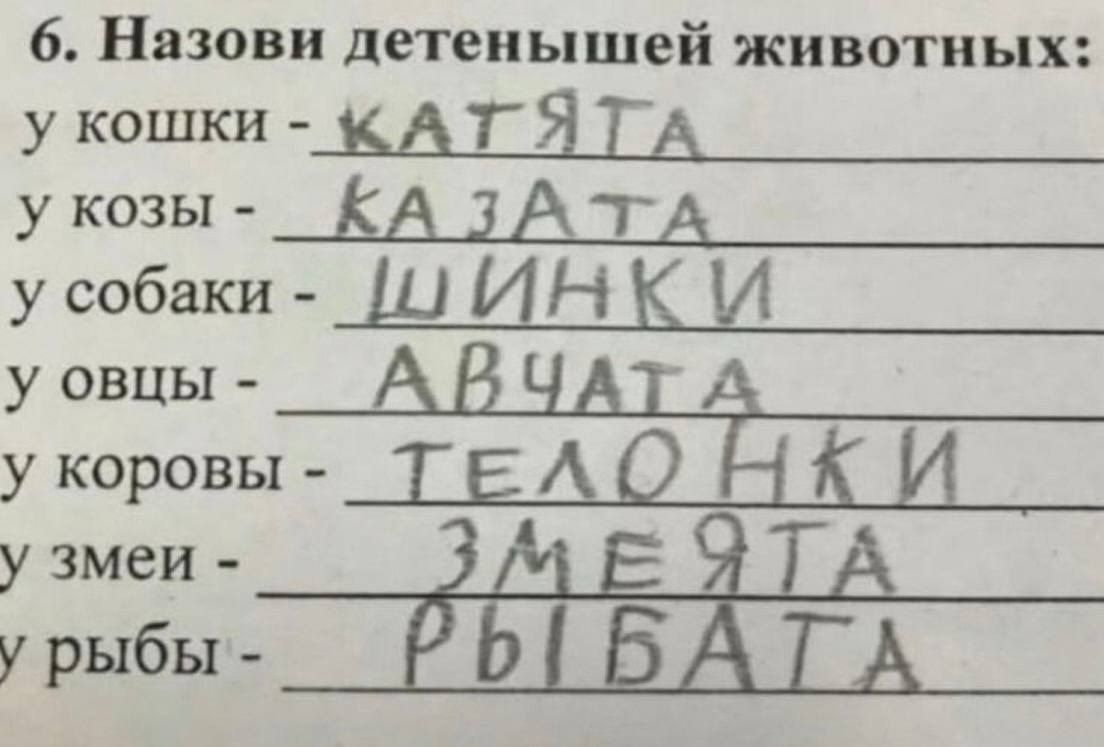 6. Назови детенышей животных:
у кошки - КАТЯТА
у козы - КАЗАТА
у собаки - ШИНКИ
у овцы - АВЧАТА
у коровы - ТЕЛОНКИ
у змеи - ЗМЕЯТА
у рыбы - РЫБАТА